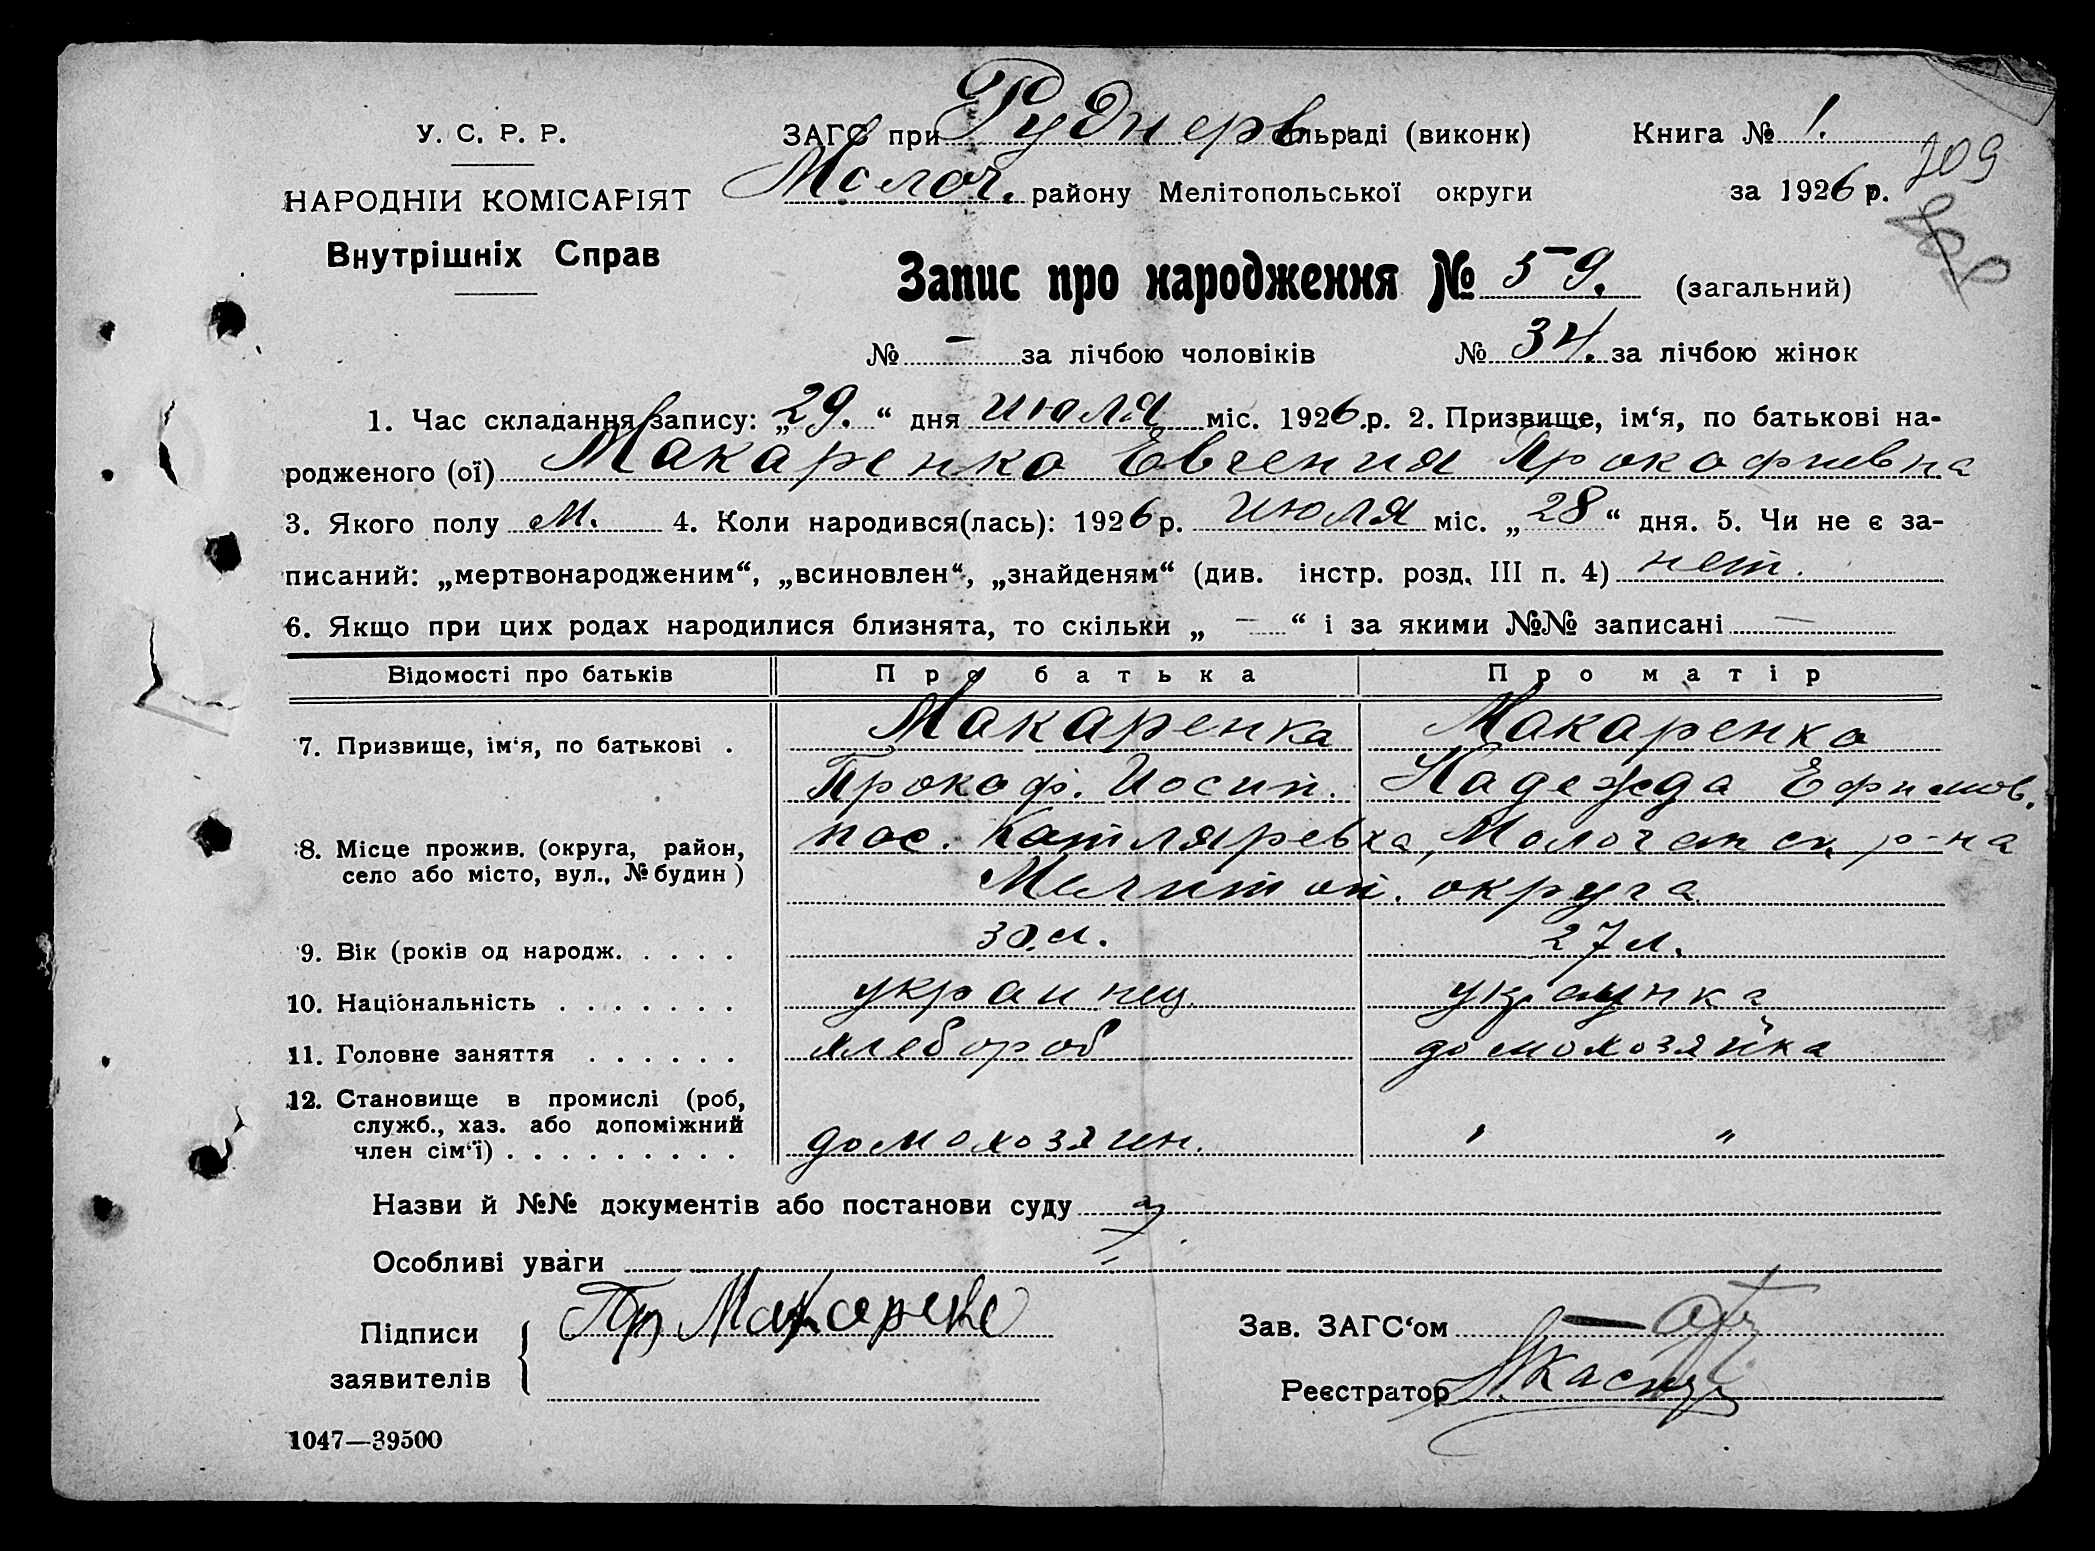 У. С. Р. Р.
НАРОДНІЙ КОМІСАРІЯТ
Внутрішніх Справ
ЗАГС при Руднерв сільраді (виконк)
Молоч. району Мелітопольської округи
Книга № 1.
за 1926 р.
209
Запис про народження № 59. (загальний)
№ – за лічбою чоловіків № 34. за лічбою жінок
1. Час складання запису: „29.“ дня июля міс. 1926.р. 2. Призвище, ім‘я, по батькові на-
родженого (ої) Макаренко Евгения Прокофиевна
3. Якого полу м. 4. Коли народився(лась): 1926 р. июля міс. „28“ дня. 5. Чи не є за-
писаний: „мертвонародженим“, „всиновлен“, „знайденям“ (див. інстр. розд. III п. 4) нет.
6. Якщо при цих родах народилися близнята, то скільки „ – “ і за якими №№ записані –
Відомості про батьків Про батька Про матір
7. Призвище, ім‘я, по батькові . Макаренка Макаренко
Прокоф. Иосип. Надежда Ефимов.
8. Місце прожив. (округа, район, пос. Катляревка, Молочанск. р-на
село або місто, вул., № будин ) Мелитоп. округа
9. Вік (років од народж. . . . . 30.л. 27 л.
10. Національність . . . . . . . украинец украинка
11. Головне заняття . . . . . . хлебороб домохозяйка
12. Становище в промислі (роб,
служб., хаз. або допоміжний
член сім‘ї) . . . . . . . . . домохозяин. " "
Назви й №№ документів або постанови суду
Особливі уваги
Підписи
заявителів
Пр Макаренко
Зав. ЗАГС‘ом
Реєстратор
1047—39500